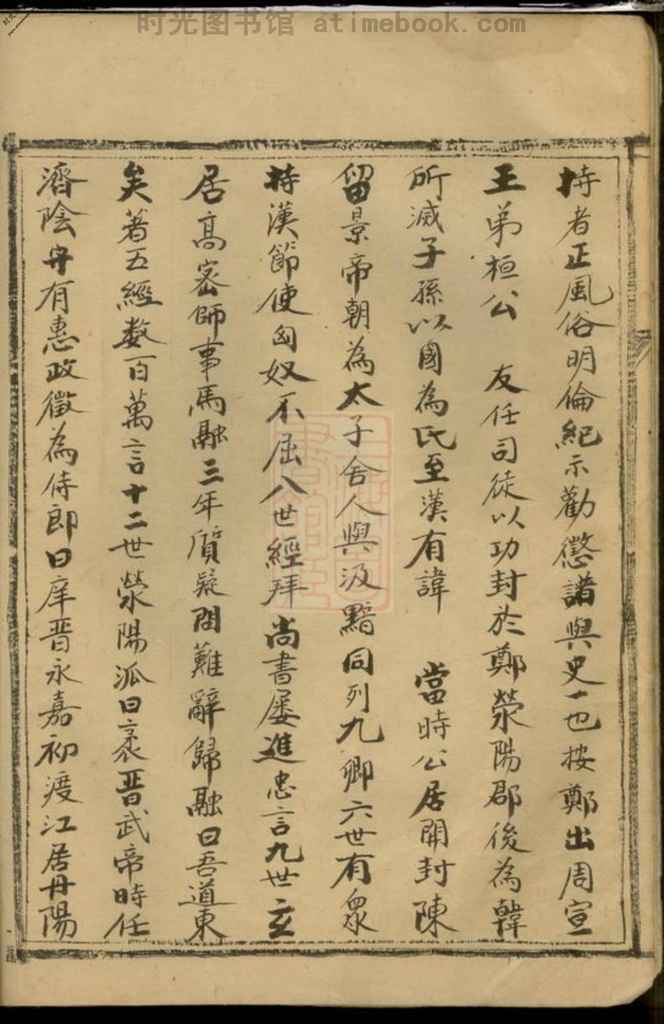 时光图书馆 atimebook.com
持者正風俗明倫紀示勸懲譜與史一也按鄭出周宣
王弟桓公 友任司徒以功封於鄭滎陽郡後為韓
所滅子孫以國為氏至漢有諱 當時公居開封陳
留景帝朝為太子舍人與汲黯同列九卿六世有衆
持漢節使匈奴不屈八世經拜尚書屡進忠言九世玄
居高密師事馬融三年質疑問難辭歸融曰吾道東
矣著五經数百萬言十二世滎陽派曰袤晋武帝時任
濟陰守有惠政徵為侍郎曰庠晋永嘉初渡江居丹陽